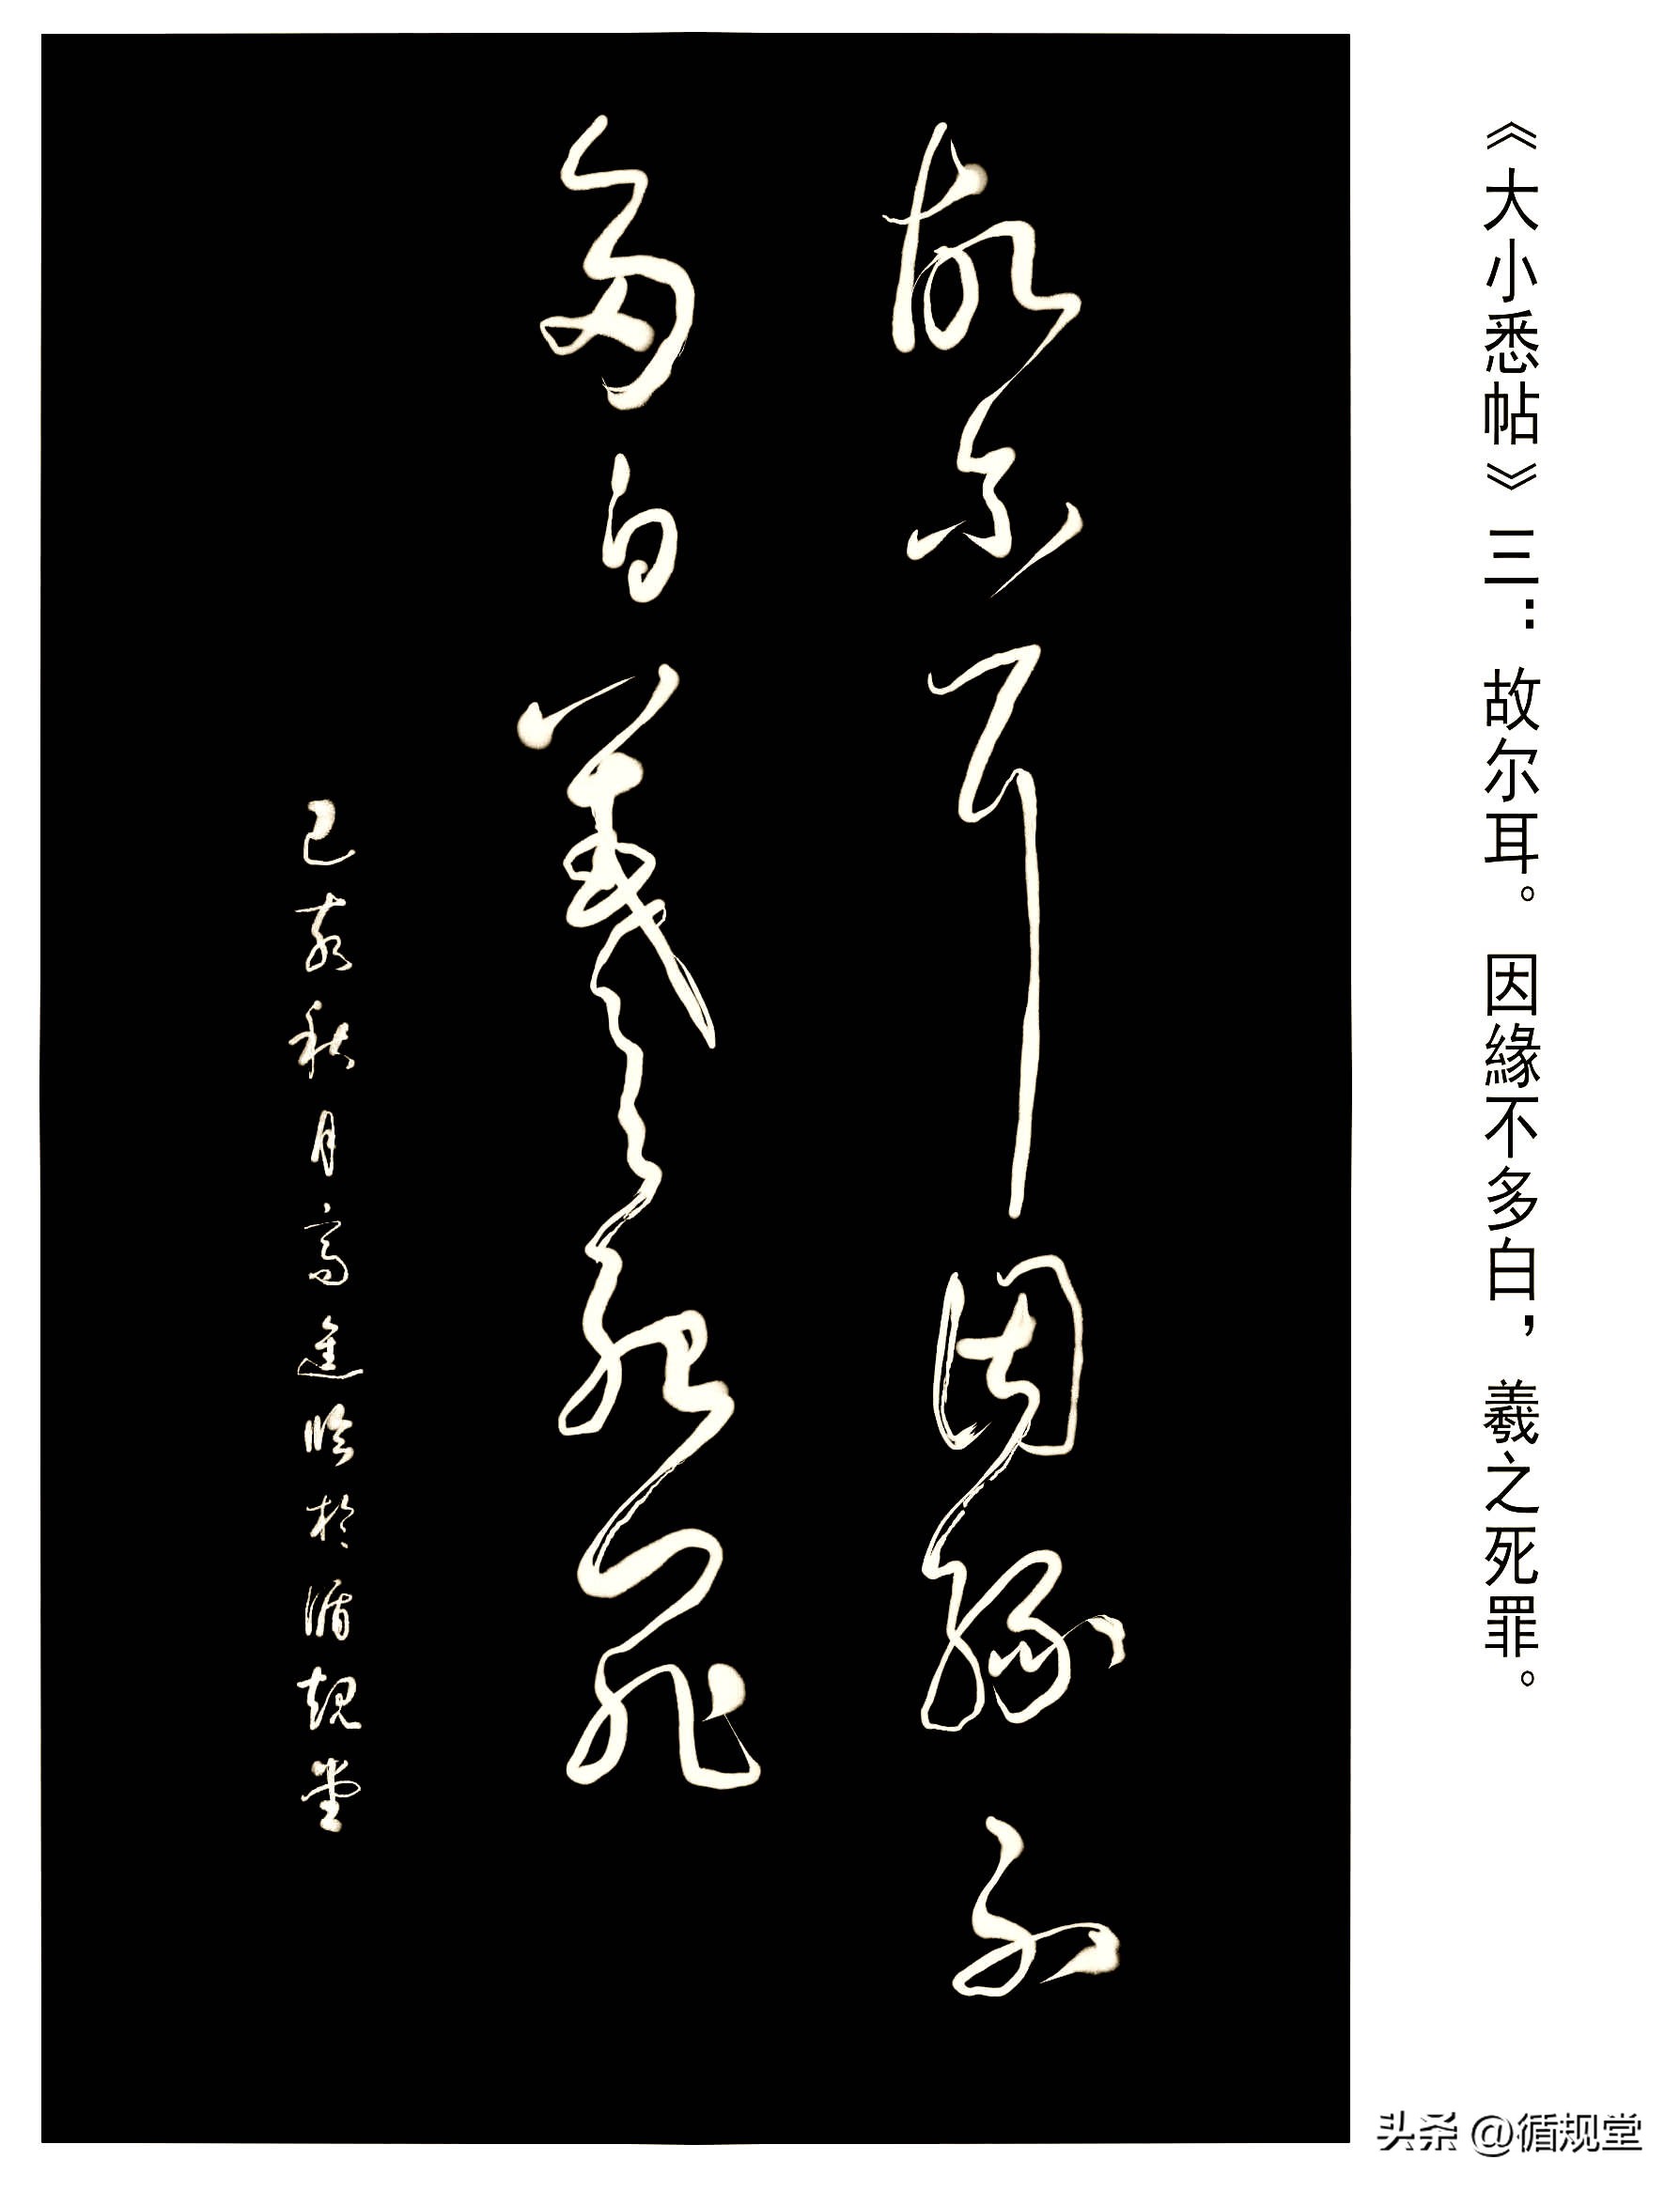 《大小悉帖》三：故尔耳。因緣不多白，羲之死罪。
故尔耳因緣不
多白羲之死罪
己亥秋月高進臨於循規堂
头条 @循规堂